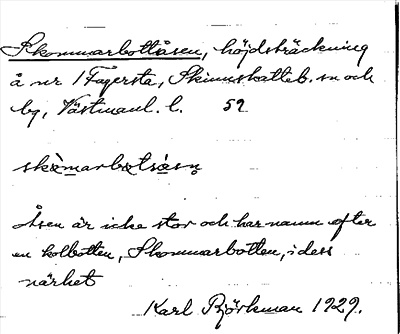 Skommarbottåsen, höjdsträckning
å nr 1 Fagersta, Skinnskatteb. sn och
bg, Västmanl. l. 59
skòmarbotsåsn
Åsen är icke stor och har namn efter
en kolbotten, Skommarbotten, i dess
närhet
Karl Björkman 1929.